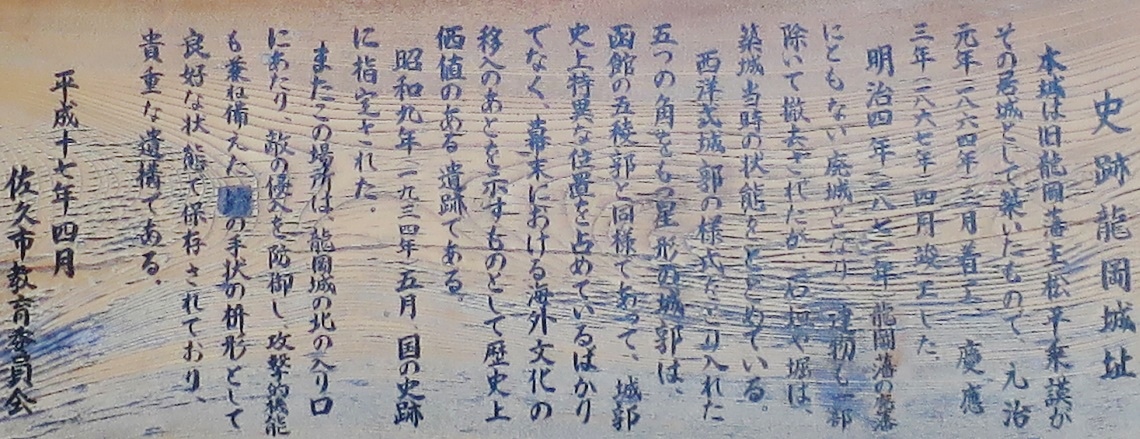 史跡 龍岡城址
本城は旧龍岡藩主松平乗謨が
その居城として築いたもので、元治
元年一八六四年三月着工 慶應
三年一八六七年 四月竣工した
明治四年一八七一年 龍岡藩の廃藩
にともない廃城となり 建物も一部
除いて撤去されたが 石垣や堀は、
築城当時の状態をとどめている。
西洋式城郭の様式をとり入れた
五つの角をもつ星形の城郭は、
函館の五稜郭と同様であって、城郭
史上特異な位置を占めているばかり
でなく、幕末における海外文化の
移入のあとを示すものとして歴史上
価値のある遺跡である
昭和九年一九三四年五月 国の史跡
に指定された。
またこの場所は、龍岡城の北の入り口
にあたり、敵の侵入を防御し、攻撃的機能
も兼ね備えた の手状の枡形として
良好な状態で保存されており、
貴重な遺構である。
平成十七年四月
佐久市教育委員会